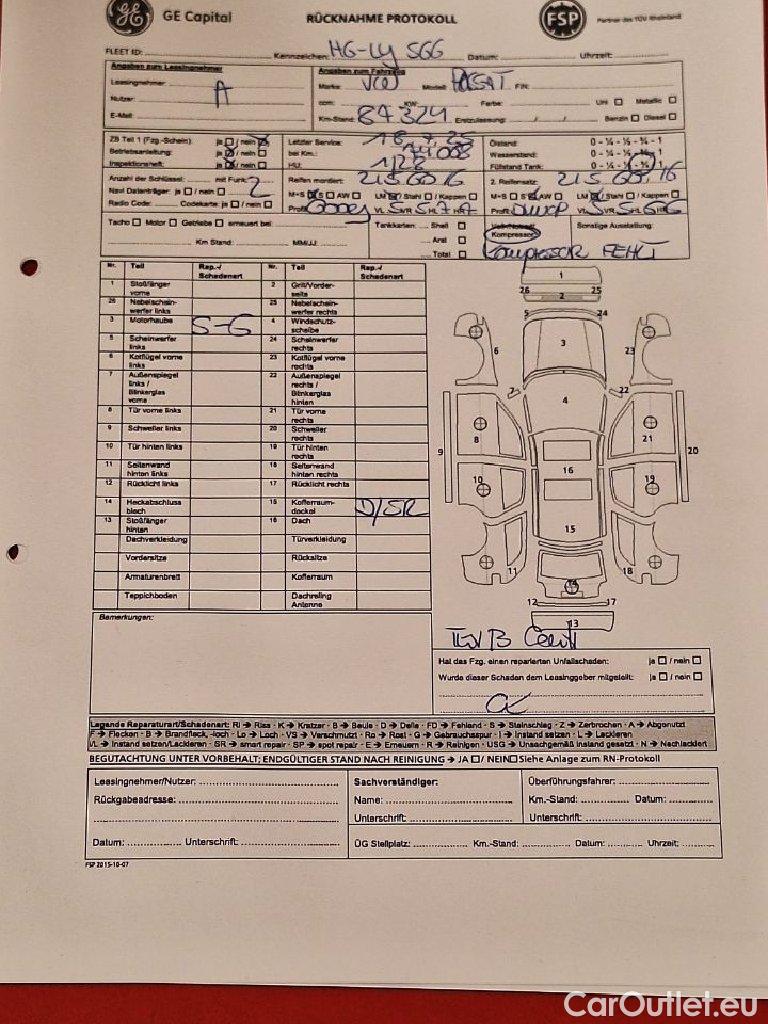 GE Capital
RÜCKNAHME PROTOKOLL
FSP
Partner des TÜV Rheinland
FLEET ID: Kennzeichen: HG-LY 566 Datum: Uhrzeit:
Angaben zum Leasingnehmer
Leasingnehmer:
Nutzer: A
E-Mail:
Angaben zum Fahrzeug
Marke: VW Modell: PASSAT FIN:
ccm: KW: Farbe: Uni Metallic
Km-Stand: 87324 Erstzulassung: Benzin Diesel
ZB Teil 1 (Fzg.-Schein): ja / nein
Betriebsanleitung: ja / nein
Inspektionsheft: ja / nein
Letzter Service:
bei Km.:
HU:
Ölstand 0 - ¼ - ½ - ¾ - 1
Wasserstand: 0 - ¼ - ½ - ¾ - 1
Füllstand Tank: 0 - ¼ - ½ - ¾ - 1
Anzahl der Schlüssel: mit Funk: 2
Navi Datenträger: ja / nein
Radio Code: Codekarte: ja / nein
Reifen montiert: 215 60 16
M+S S AW LM / Stahl / Kappen
Profil
2. Reifensatz: 215 60R 16
M+S S AW LM / Stahl / Kappen
Profil DUNLOP
Tacho Motor Getriebe erneuert bei
Km Stand: MM/JJ:
Tankkarten: Shell
Aral
Total
Kompressor
Sonstige Ausstattung:
Kompressor FEHLT
Nr. Teil Rep.-/ Schadenart Nr. Teil Rep.-/ Schadenart
1 Stoßfänger vorne 2 Grill/Vorderseite
26 Nebelscheinwerfer links 25 Nebelscheinwerfer rechts
3 Motorhaube S-G 4 Windschutzscheibe
5 Scheinwerfer links 24 Scheinwerfer rechts
6 Kotflügel vorne links 23 Kotflügel vorne rechts
7 Außenspiegel links / Blinkerglas vorne 22 Außenspiegel rechts / Blinkerglas hinten
8 Tür vorne links 21 Tür vorne rechts
9 Schweller links 20 Schweller rechts
10 Tür hinten links 19 Tür hinten rechts
11 Seitenwand hinten links 18 Seitenwand hinten rechts
12 Rücklicht links 17 Rücklicht rechts
14 Heckabschlussblech 15 Kofferraumdeckel D/SR
13 Stoßfänger hinten 16 Dach
Dachverkleidung Türverkleidung
Vordersitze Rücksitze
Armaturenbrett Kofferraum
Teppichboden Dachreling Antenne
1
26 25
2
5 24
3
6 23
7 22
4
8 21
9 20
16
10 19
15
11 18
14
12 17
13
Bemerkungen:
Hat das Fzg. einen reparierten Unfallschaden: ja / nein
Wurde dieser Schaden dem Leasinggeber mitgeteilt: ja / nein
Legende Reparaturart/Schadenart: RI → Riss - K → Kratzer - B → Beule - D → Delle - FD → Fehlend - S → Steinschlag - Z → Zerbrochen - A → Abgenutzt
F → Flecken - B → Brandfleck, -loch - Lo → Loch - VS → Verschmutzt - Ro → Rost - G → Gebrauchsspur - I → Instand setzen - L → Lackieren
I/L → Instand setzen/Lackieren - SR → smart repair - SP → spot repair - E → Erneuern - R → Reinigen - USG → Unsachgemäß instand gesetzt - N → Nachlackiert
BEGUTACHTUNG UNTER VORBEHALT; ENDGÜLTIGER STAND NACH REINIGUNG → JA / NEIN Siehe Anlage zum RN-Protokoll
Leasingnehmer/Nutzer:
Rückgabeadresse:
Datum: Unterschrift:
Sachverständiger:
Name:
Unterschrift:
Überführungsfahrer:
Km.-Stand: Datum:
Unterschrift:
ÜG Stellplatz: Km.-Stand: Datum: Uhrzeit:
FSP 20 15-10-07
CarOutlet.eu